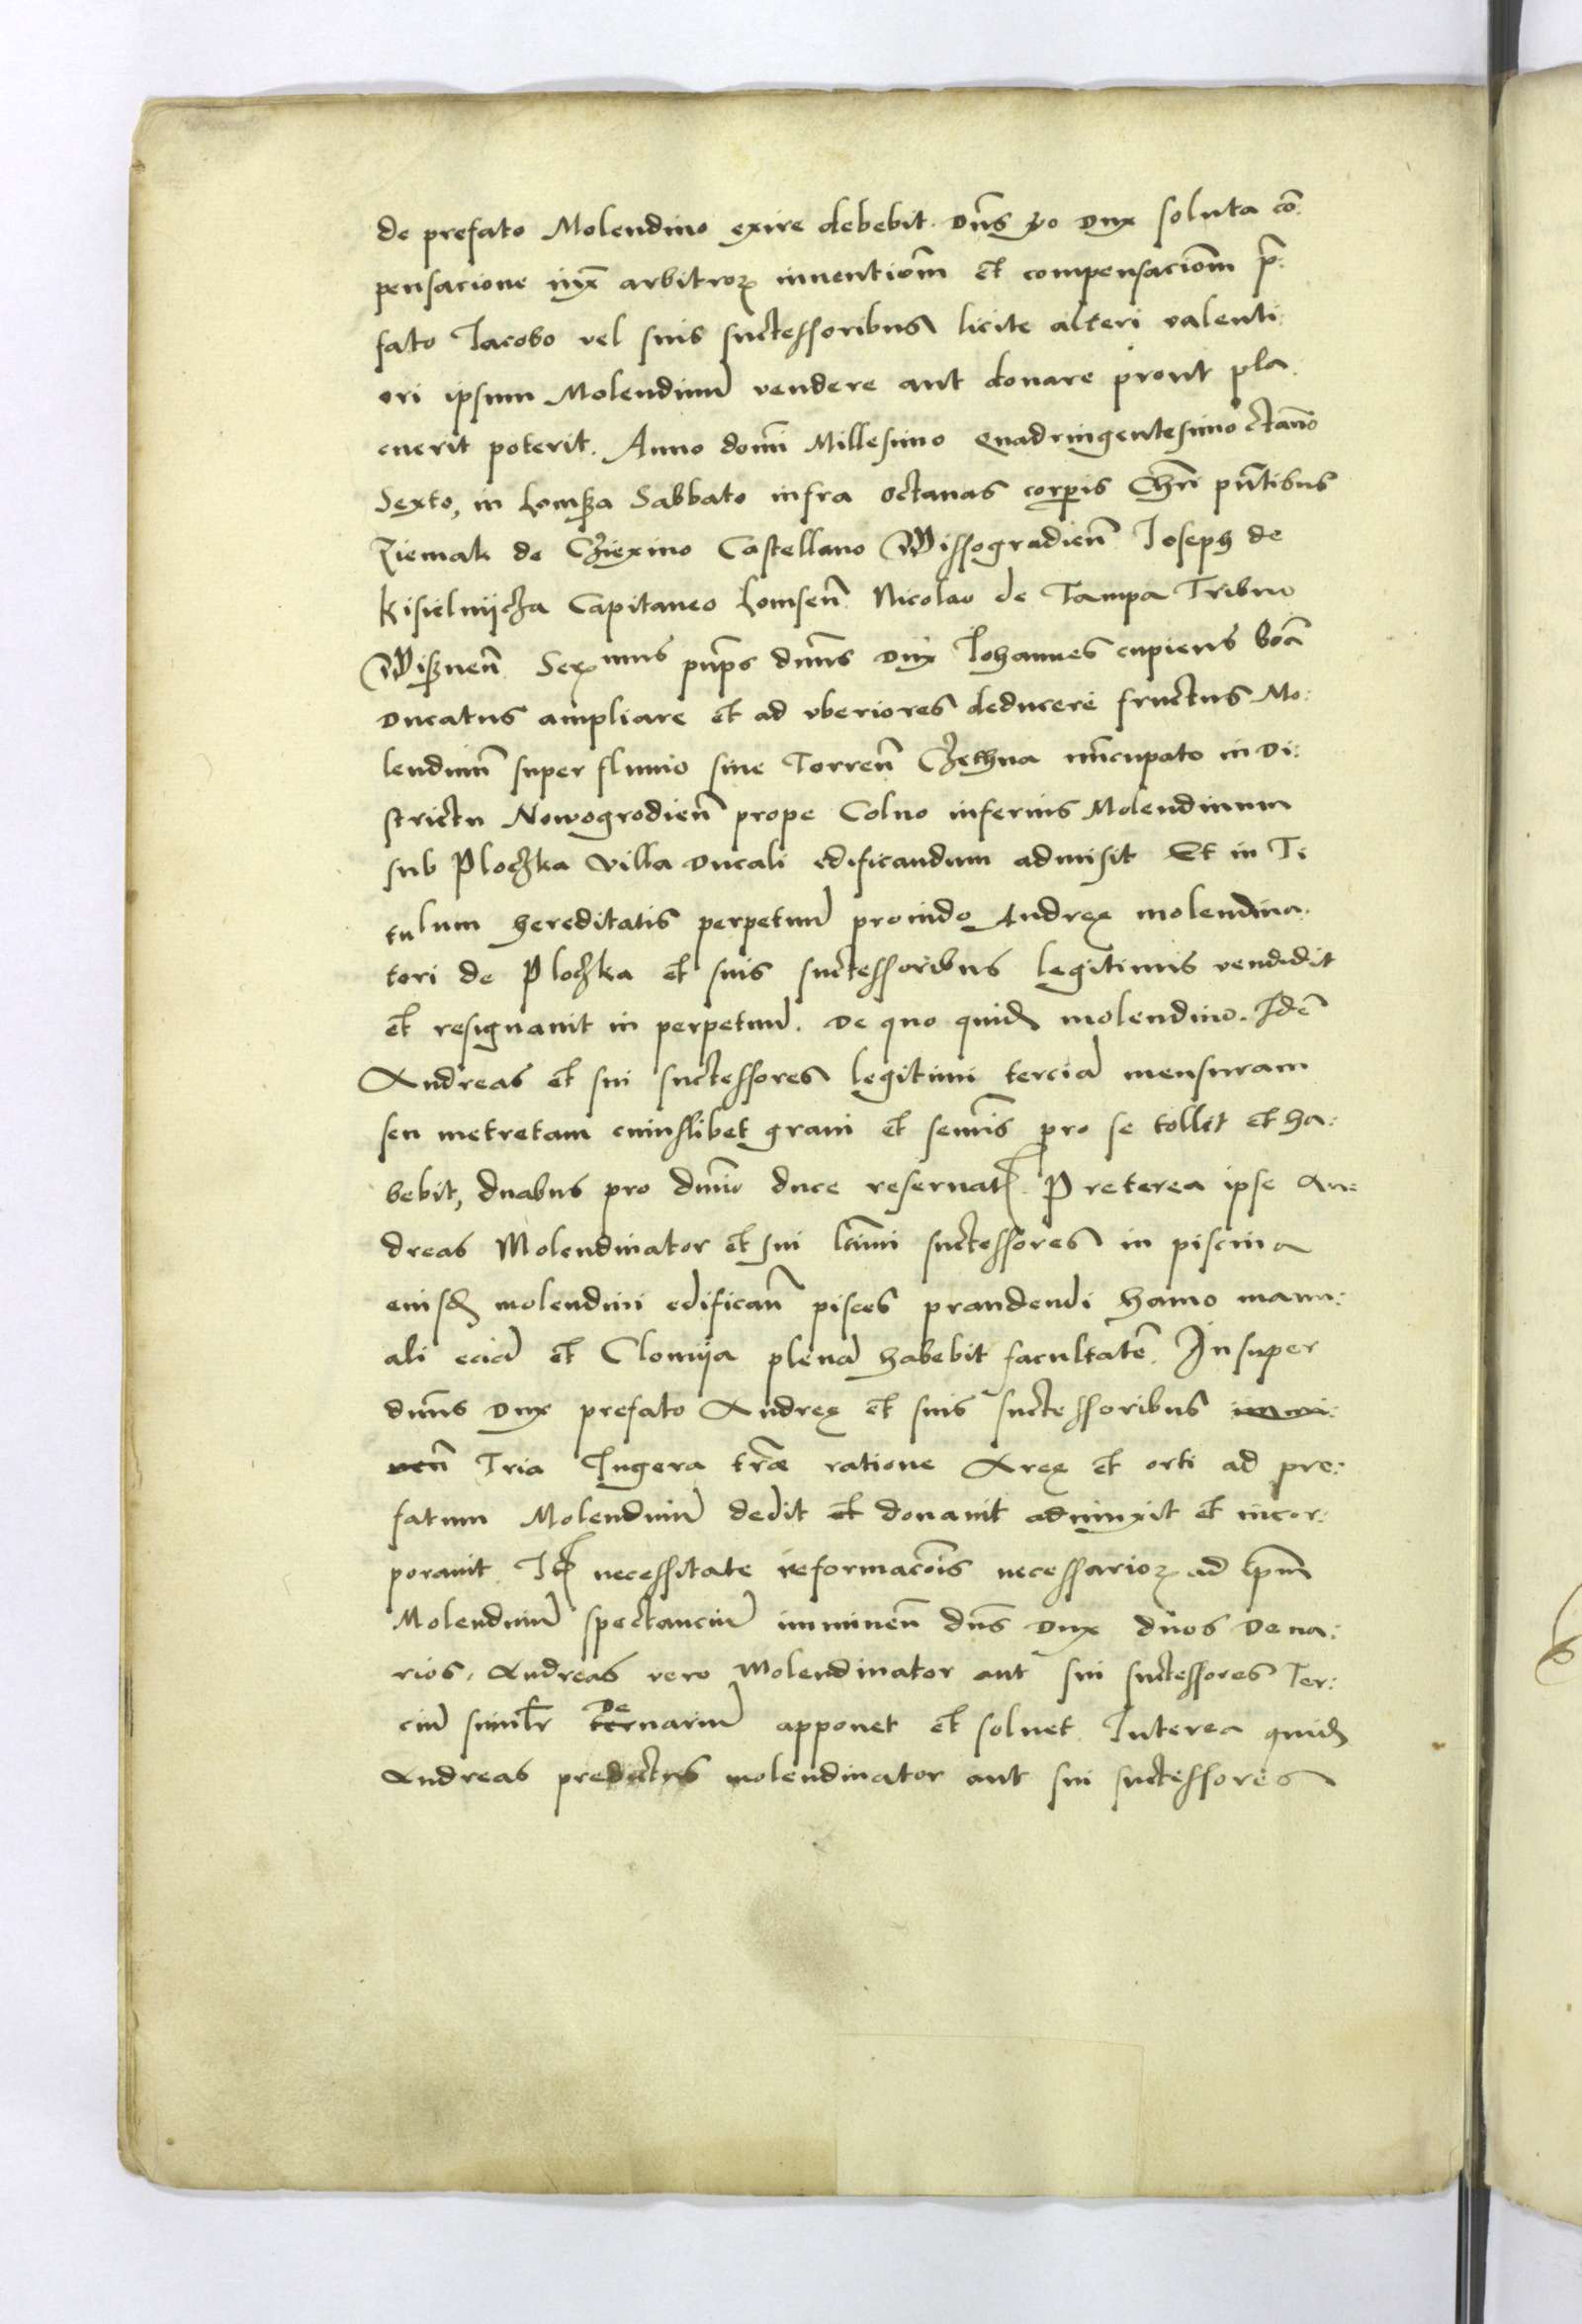 de prefato Molendino exire debebit. Dn̄s v̄o Dux soluta cō:
pensacione iux̄ arbitroꝝ inuentiōm et compensaciōm p̄:
fato Jacobo vel suis suctessoribus licite alteri valenti:
ori ipsum Molendinū vendere aut donare prout pla:
cuerit poterit. Anno domī Millesimo Quadringentesimo octāuo
Sexto, in Lomßa Sabbato infra octauas corꝑis Chrī pn̄tibus
Ziemak de Cziexino Castellano Wissogradien̄ Joseph de
Kisielnijcza Capitaneo Lomsen̄ Nicolao de Tampa Tribuo
Wißnen̄. Serꝫmus pn̄ps dn̄us Dux Johannes cupiens boā
Ducatus ampliare et ad vberiores deducere fructus Mo:
lendinū super fluuio siue Torren̄ Czethna nūcupato in Di:
strictu Nowogrodien̄ prope Colno inferius Molendinum
sub Ploczka villa Ducali edificandum admisit Et in Ti
tulum hereditatis perpetuū prouido Andreę molendina:
tori de Ploczka et suis suctessoribus legitimis vendidit
et resignauit in perpetuū. De quo quidē molendino. Idē
Andreas et sui suctessores legitimi terciā mensuram
seu metretam cuiuslibet grani et semīs pro se tollit et ha:
bebit, duabus pro dn̄io duce reseruatꝭ. Preterea ipse An:
dreas Molendinator et sui ltīmi suctessores in piscina
eiusdē molendini edifican̄ pisces prandendi hamo manu:
ali eciā et Clomija plenā habebit facultatē. Insuper
dn̄us Dux prefato Andreę et suis suctessoribus immi:
nen̄ Tria Jugera tr̄æ ratione Areę et orti ad pre:
fatum Molendinū dedit et donauit adiunxit et incor:
porauit. Itꝭ necessitate reformacōis necessarioꝝ ad ip̄m
Molendinū spectanciū imminen̄ dn̄s Dux duos Dena:
rios. Andreas vero Molendinator aut sui suctessores Ter:
ciū similr̄ Denariū apponet et soluet. Interea quidē
Andreas predictus molendinator aut sui suctessores